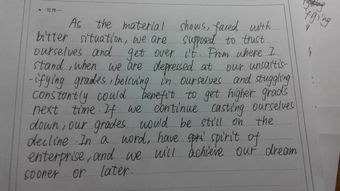 As the material shows, faced with
bitter situation, we are supposed to trust
ourselves and get over it. From where I
stand, when we are depressed at our unsaitis-
-ifying grades, beliving in ourselves and stuggling
constantly could benefit to get higher grads
next time. If we continue casting ourselves
down, our grades would be still on the
decline. In a word, have spirit of
enterprise, and we will achieve our dream
sooner or later